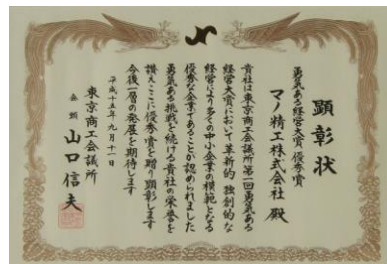 顕彰状
勇気ある経営大賞 優秀賞
マノ精工株式会社 殿
貴社は東京商工会議所第一回勇気ある
経営大賞において革新的 独創的な
経営により多くの中小企業の模範となる
優秀な企業であることが認められました
勇気ある挑戦を続ける貴社の栄誉を
讃えここに優秀賞を贈り顕彰します
今後一層の発展を期待します
平成十五年九月十一日
東京商工会議所
会頭 山口信夫